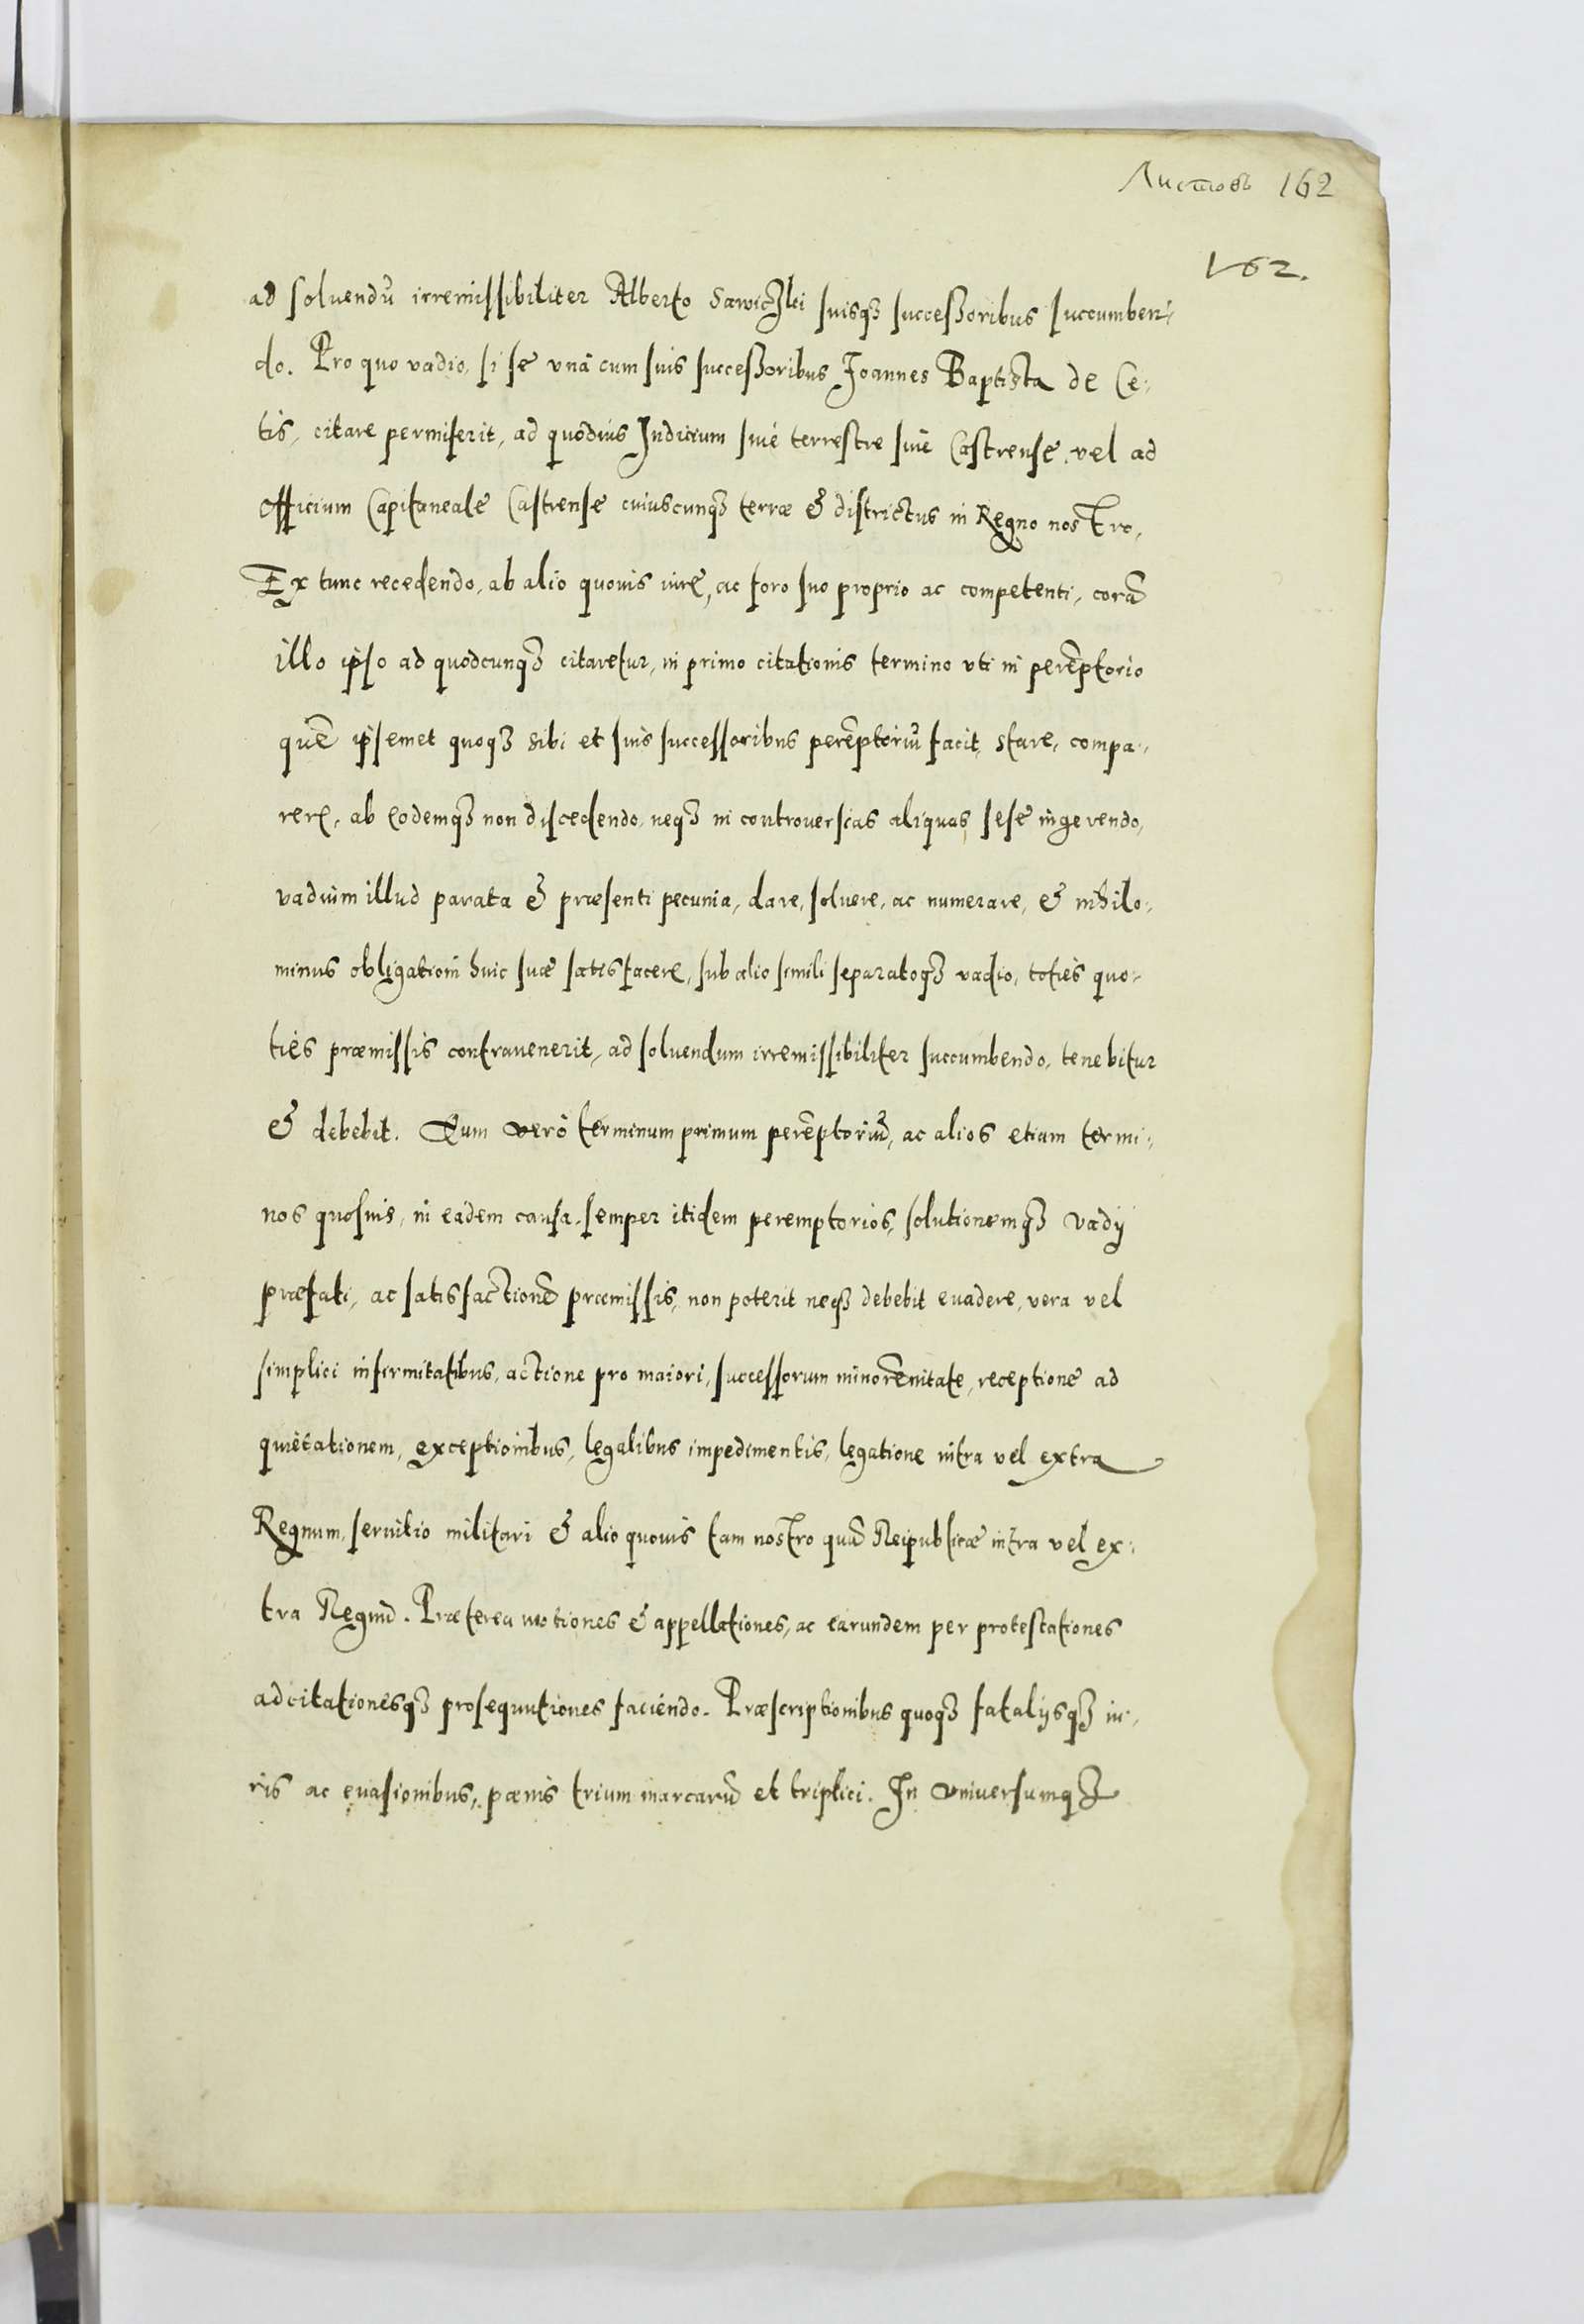 Листовъ 162
162.
ad soluendũ irremissibiliter Alberto Sawiczki suisqȝ successoribus succumben-
do. Pro quo vadio, si se vnà cum suis successoribus Joannes Baptista de Ce-
tis, citare permiserit, ad quoduis Judicium siue terrestre siue Castrense, vel ad
Officium Capitaneale Castrense cuiuscunqȝ terræ & districtus in Regno nostro,
Ex tunc recedendo, ab alio quouis iure, ac foro suo proprio ac competenti, corã
illo ipso ad quodcunqȝ citaretur, in primo citationis termino vti in perẽptorio
quẽ ipsemet quoqȝ sibi et suis successoribus perẽptoriũ facit, stare, compa-
rere, ab eodemqȝ non discedendo, neqȝ in controuersias aliquas sese ingerendo,
vadium illud parata & præsenti pecunia, dare, soluere, ac numerare, & nihilo-
minus obligationi huic suæ satisfacere, sub alio simili separatoqȝ vadio, toties quo-
ties præmissis contrauenerit, ad soluendum irremissibiliter succumbendo, tenebitur
& debebit. Quum verò terminum primum perẽptoriũ, ac alios etiam termi-
nos quosuis, in eadem causa semper itidem peremptorios, solutionemqȝ vadij
præfati, ac satisfactionẽ præmissis, non poterit neqȝ debebit euadere, vera vel
simplici infirmitatibus, actione pro maiori, successorum minorennitate, receptione ad
quietationem, exceptionibus, legalibus impedimentis, legatione intra vel extra
Regnum, seruitio militari & alio quouis tam nostro quã Reipublicæ intra vel ex-
tra Regnũ. Præterea motiones & appellationes, ac earundem per protestationes
adcitationesqȝ prosequutiones faciendo. Præscriptionibus quoqȝ fatalijsqȝ iu-
ris ac euasionibus, pœnis trium marcarũ et triplici. In vniuersumqȝ